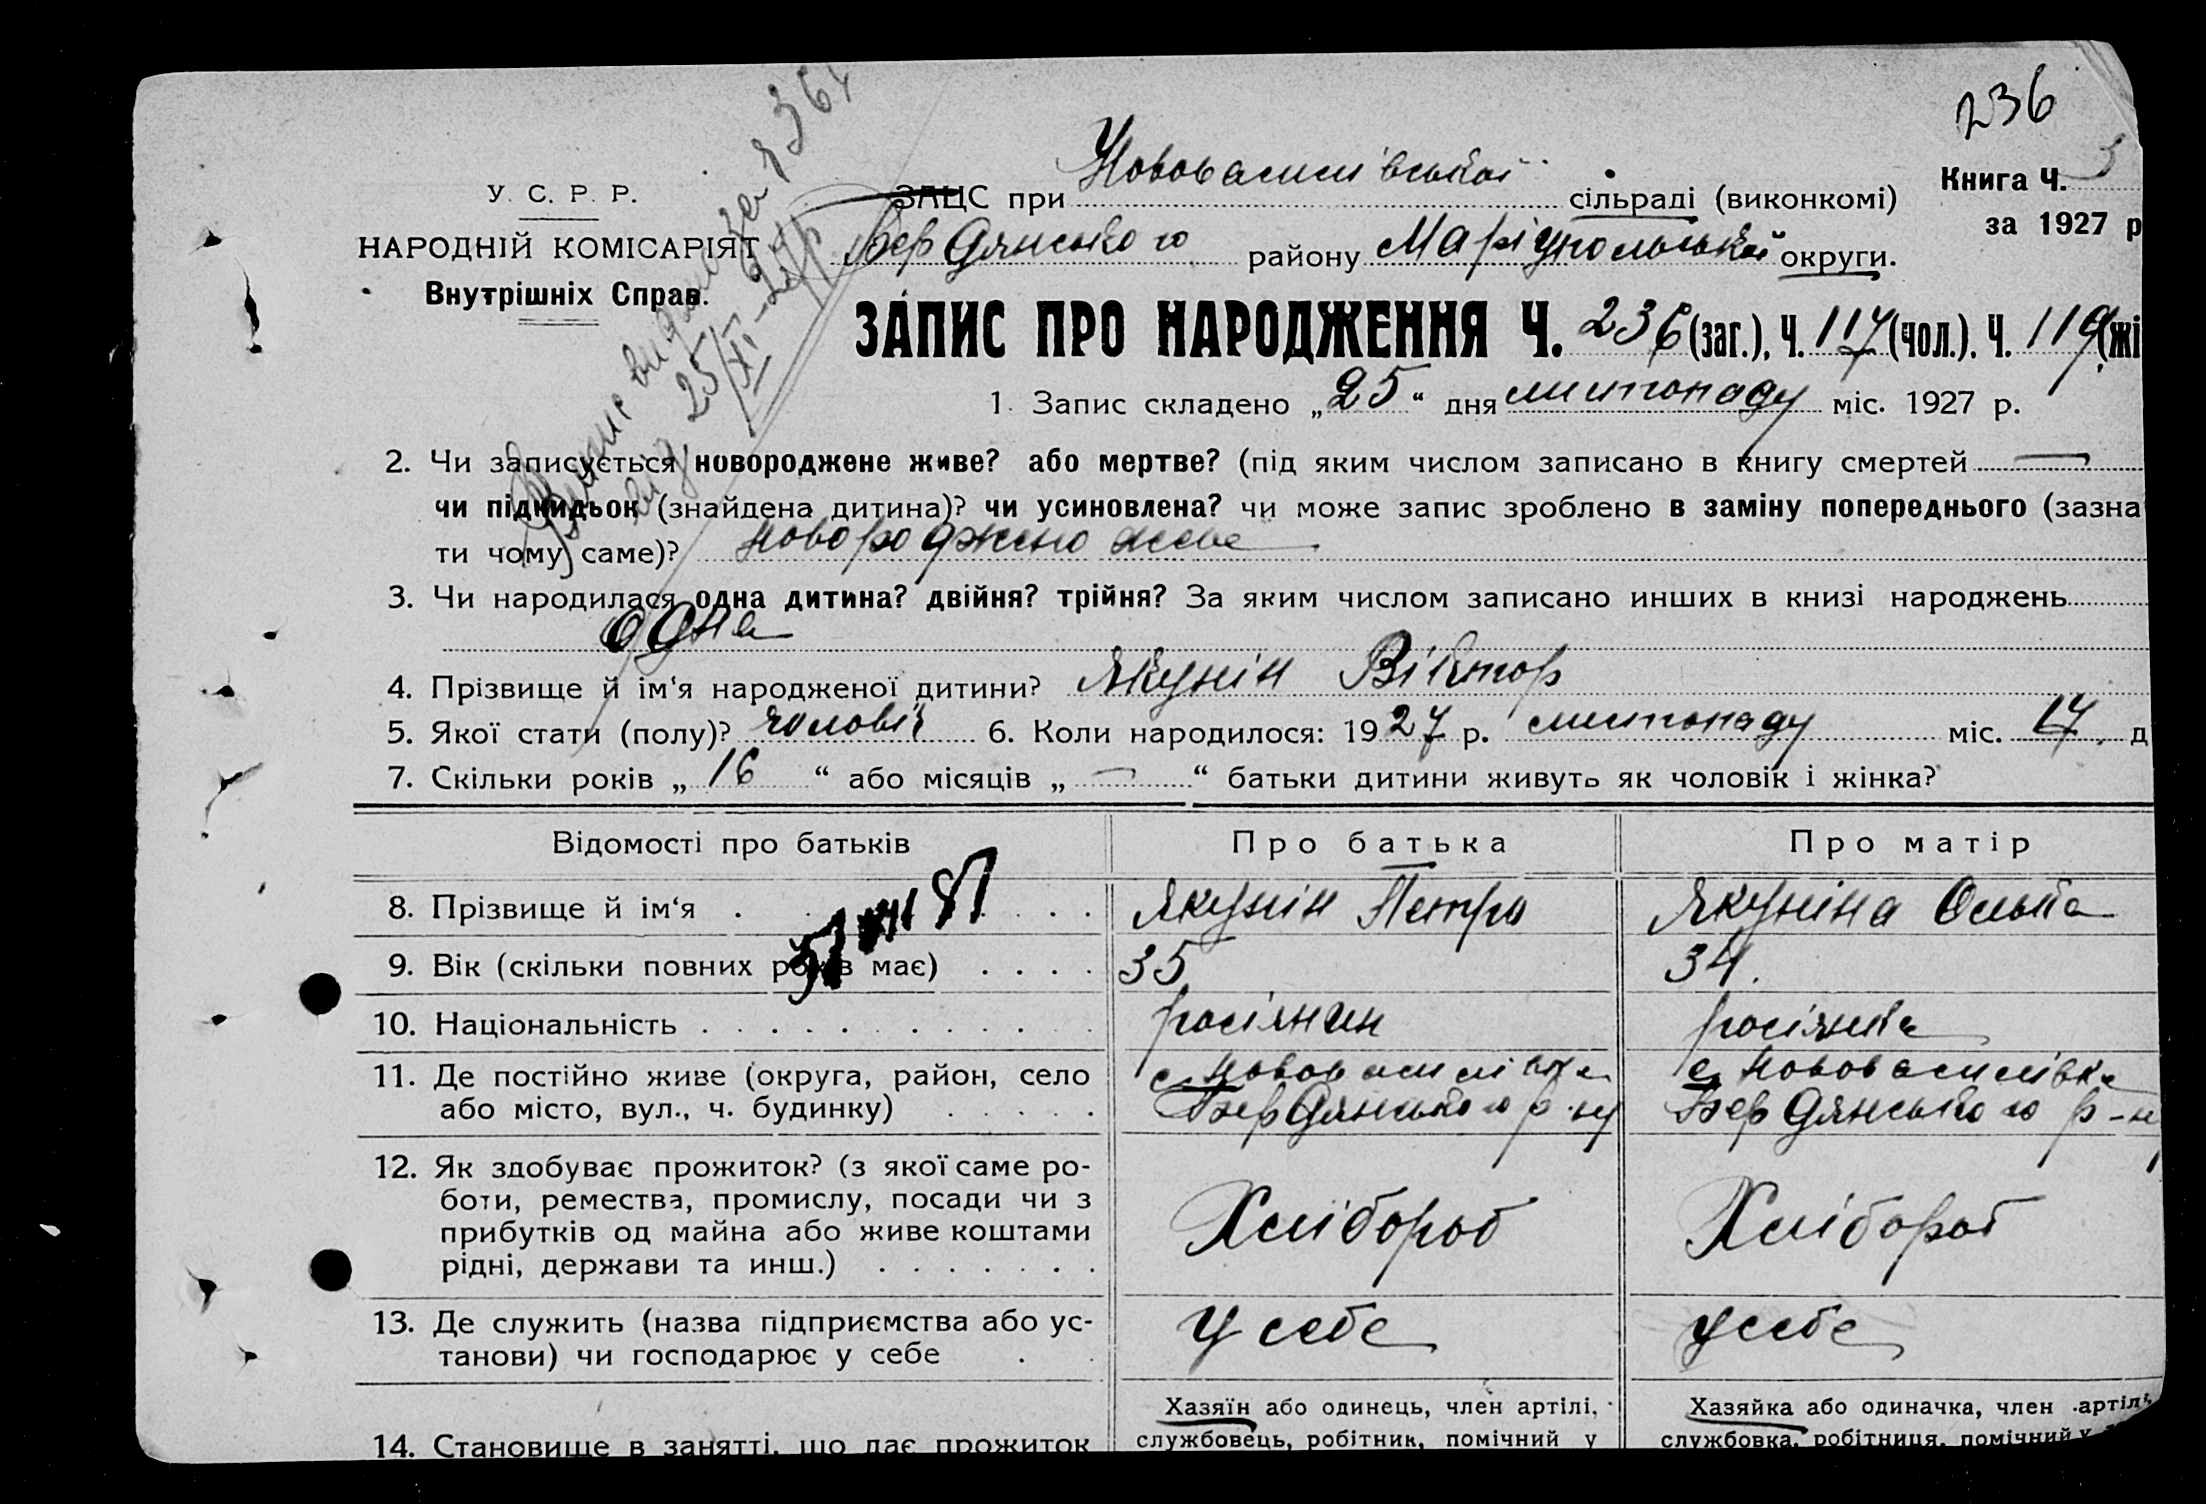 236
Книга Ч. 3
за 1927 р
У. С. Р. Р.
НАРОДНІЙ КОМІСАРІЯТ
Внутрішніх Справ.
ЗАЦС при Нововасилівській сільраді (виконкомі)
Бердянського району Маріупольської округи.
ЗАПИС ПРО НАРОДЖЕННЯ Ч. 236 (заг.), Ч. 117 (чол.), Ч. 119 (жі
1. Запис складено „25“ дня листопаду міс. 1927 р.
2. Чи записується новороджене живе? або мертве? (під яким числом записано в книгу смертей —
чи підкидьок (знайдена дитина)? чи усиновлена? чи може запис зроблено в заміну попереднього (зазна
ти чому саме)? новороджено живе
3. Чи народилася одна дитина? двійня? трійня? За яким числом записано инших в книзі народжень
одна
4. Прізвище й ім‘я народженої дитини? Якунін Віктор
5. Якої стати (полу)? чоловіч 6. Коли народилося: 1927 р. листопаду міс. 17 д
7. Скільки років „ 16 “ або місяців „ — “ батьки дитини живуть як чоловік і жінка?
Відомості про батьків Про батька Про матір
8. Прізвище й ім‘я Якунін Петро Якуніна Ольга
9. Вік (скільки повних років має) 35 34.
10. Національність росіянин росіянка
11. Де постійно живе (округа, район, село с. Нововасилівка с. Нововасилівка
або місто, вул., ч. будинку) Бердянського р-ну Бердянського р-н
12. Як здобуває прожиток? (з якої саме ро-
боти, ремества, промислу, посади чи з Хлібороб Хлібороб
прибутків од майна або живе коштами
рідні, держави та инш.)
13. Де служить (назва підприємства або ус- У себе у себе
танови) чи господарює у себе
Хазяїн або одинець, член артілі, Хазяйка або одиначка, член артілі
14. Становище в занятті, що дає прожиток службовець, робітник, помічний у службовка, робітниця, помічний у